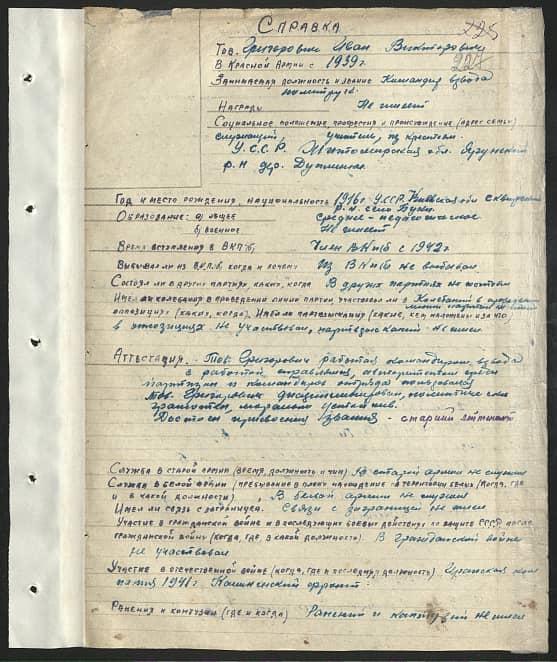 Справка
225
224
Тов. Григорович Иван Викторович
В Красной Армии с 1939 г
Занимаемая должность и звание Командир взвода
политрук
Награды Не имеет
Социальное положение профессия и происхождение (адрес семьи)
служащий, учитель, из крестьян.
У.С.С.Р. Житомирская обл.
р-н дер.
Год и место рождения, национальность 1916 г. УССР. Киевская обл
р-н село
Образование: а) общее среднее-педагогическое
б) военное Не имеет
Время вступления в ВКП/б/ Член ВКПб с 1942 г
Выбывал ли из ВКП/б/, когда и почему Из ВКПб не выбывал
Состоял ли в других партиях, каких, когда В других партиях не состоял
Имел ли колебания в проведении линии партии, участвовал ли в Колебаний в проведении
линии партии не имел
оппозициях (каких, когда), имел ли партвзыскания (какие, кем наложены и за что)
в оппозициях не участвовал, партвзысканий не имел
Аттестация. - Тов. Григорович работая командиром взвода
с работой справлялся, авторитетом среди
партизан и командиров отряда пользовался
Тов. Григорович дисциплинирован, политически
грамотен, морально устойчив.
Достоин присвоения звания - старший лейтенант
Служба в старой армии (время, должность и чин) В старой армии не служил
Служба в белой армии (пребывание в плену нахождение на территории белых (когда, где
и в какой должности) В белой армии не служил
Имел ли связь с заграницей. Связи с заграницей не имел
Участие в гражданской войне и в последующих боевых действиях по защите СССР после
гражданской войны (когда, где, в какой должности). В Гражданской войне
не участвовал
Участие в отечественной войне (когда, где и последняя должность)
1941 г. фронт.
Ранения и контузии (где и когда) Ранений и контузий не имел